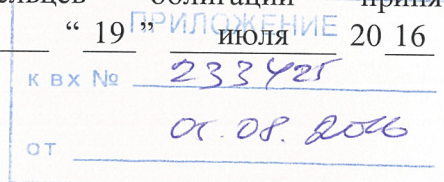 облигаций
“ 19 ” июля 20 16
ПРИЛОЖЕНИЕ
к вх № 233425
от 01.08.2016